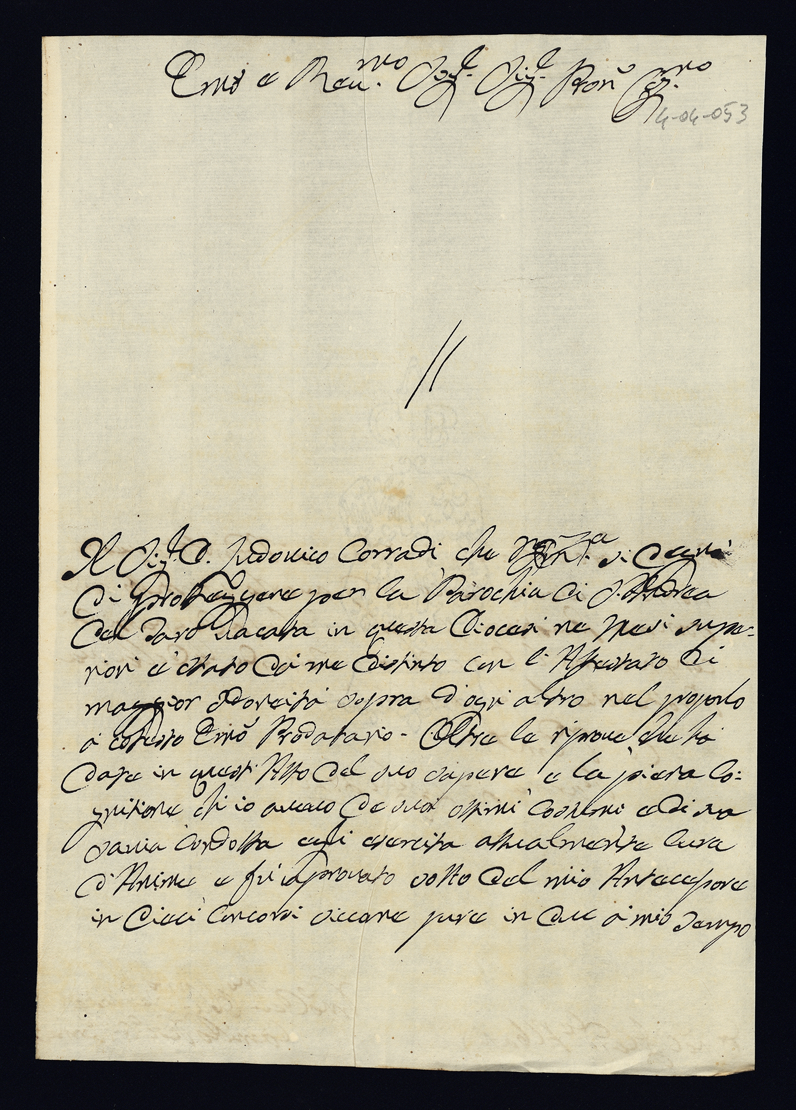 Emõ e Reu.mo Sig.r Sig.r Pron.o
4-04-053
Il Sig.r D. Ludouico Corradi che si
di per la Parochia di S. Andrea
del Taro uacata in questa Diocesi ne Mesi supe-
riori è stato da me distinto con l'Attestato di
maggior Idoneità sopra d'ogni altro nel proporlo
à cotesto Emõ Prodatario. Oltre le riproue che hà
date in questi Atto del suo sapere e la piena co-
gnitione ch'io aueuo de suoi ottimi Costumi e di sua
sauia Condotta egli esercita attualmente Cura
d'Anime e fù approuato sotto del mio Antecessore
in dieci Concorsi siccome pure in due à mio Tempo